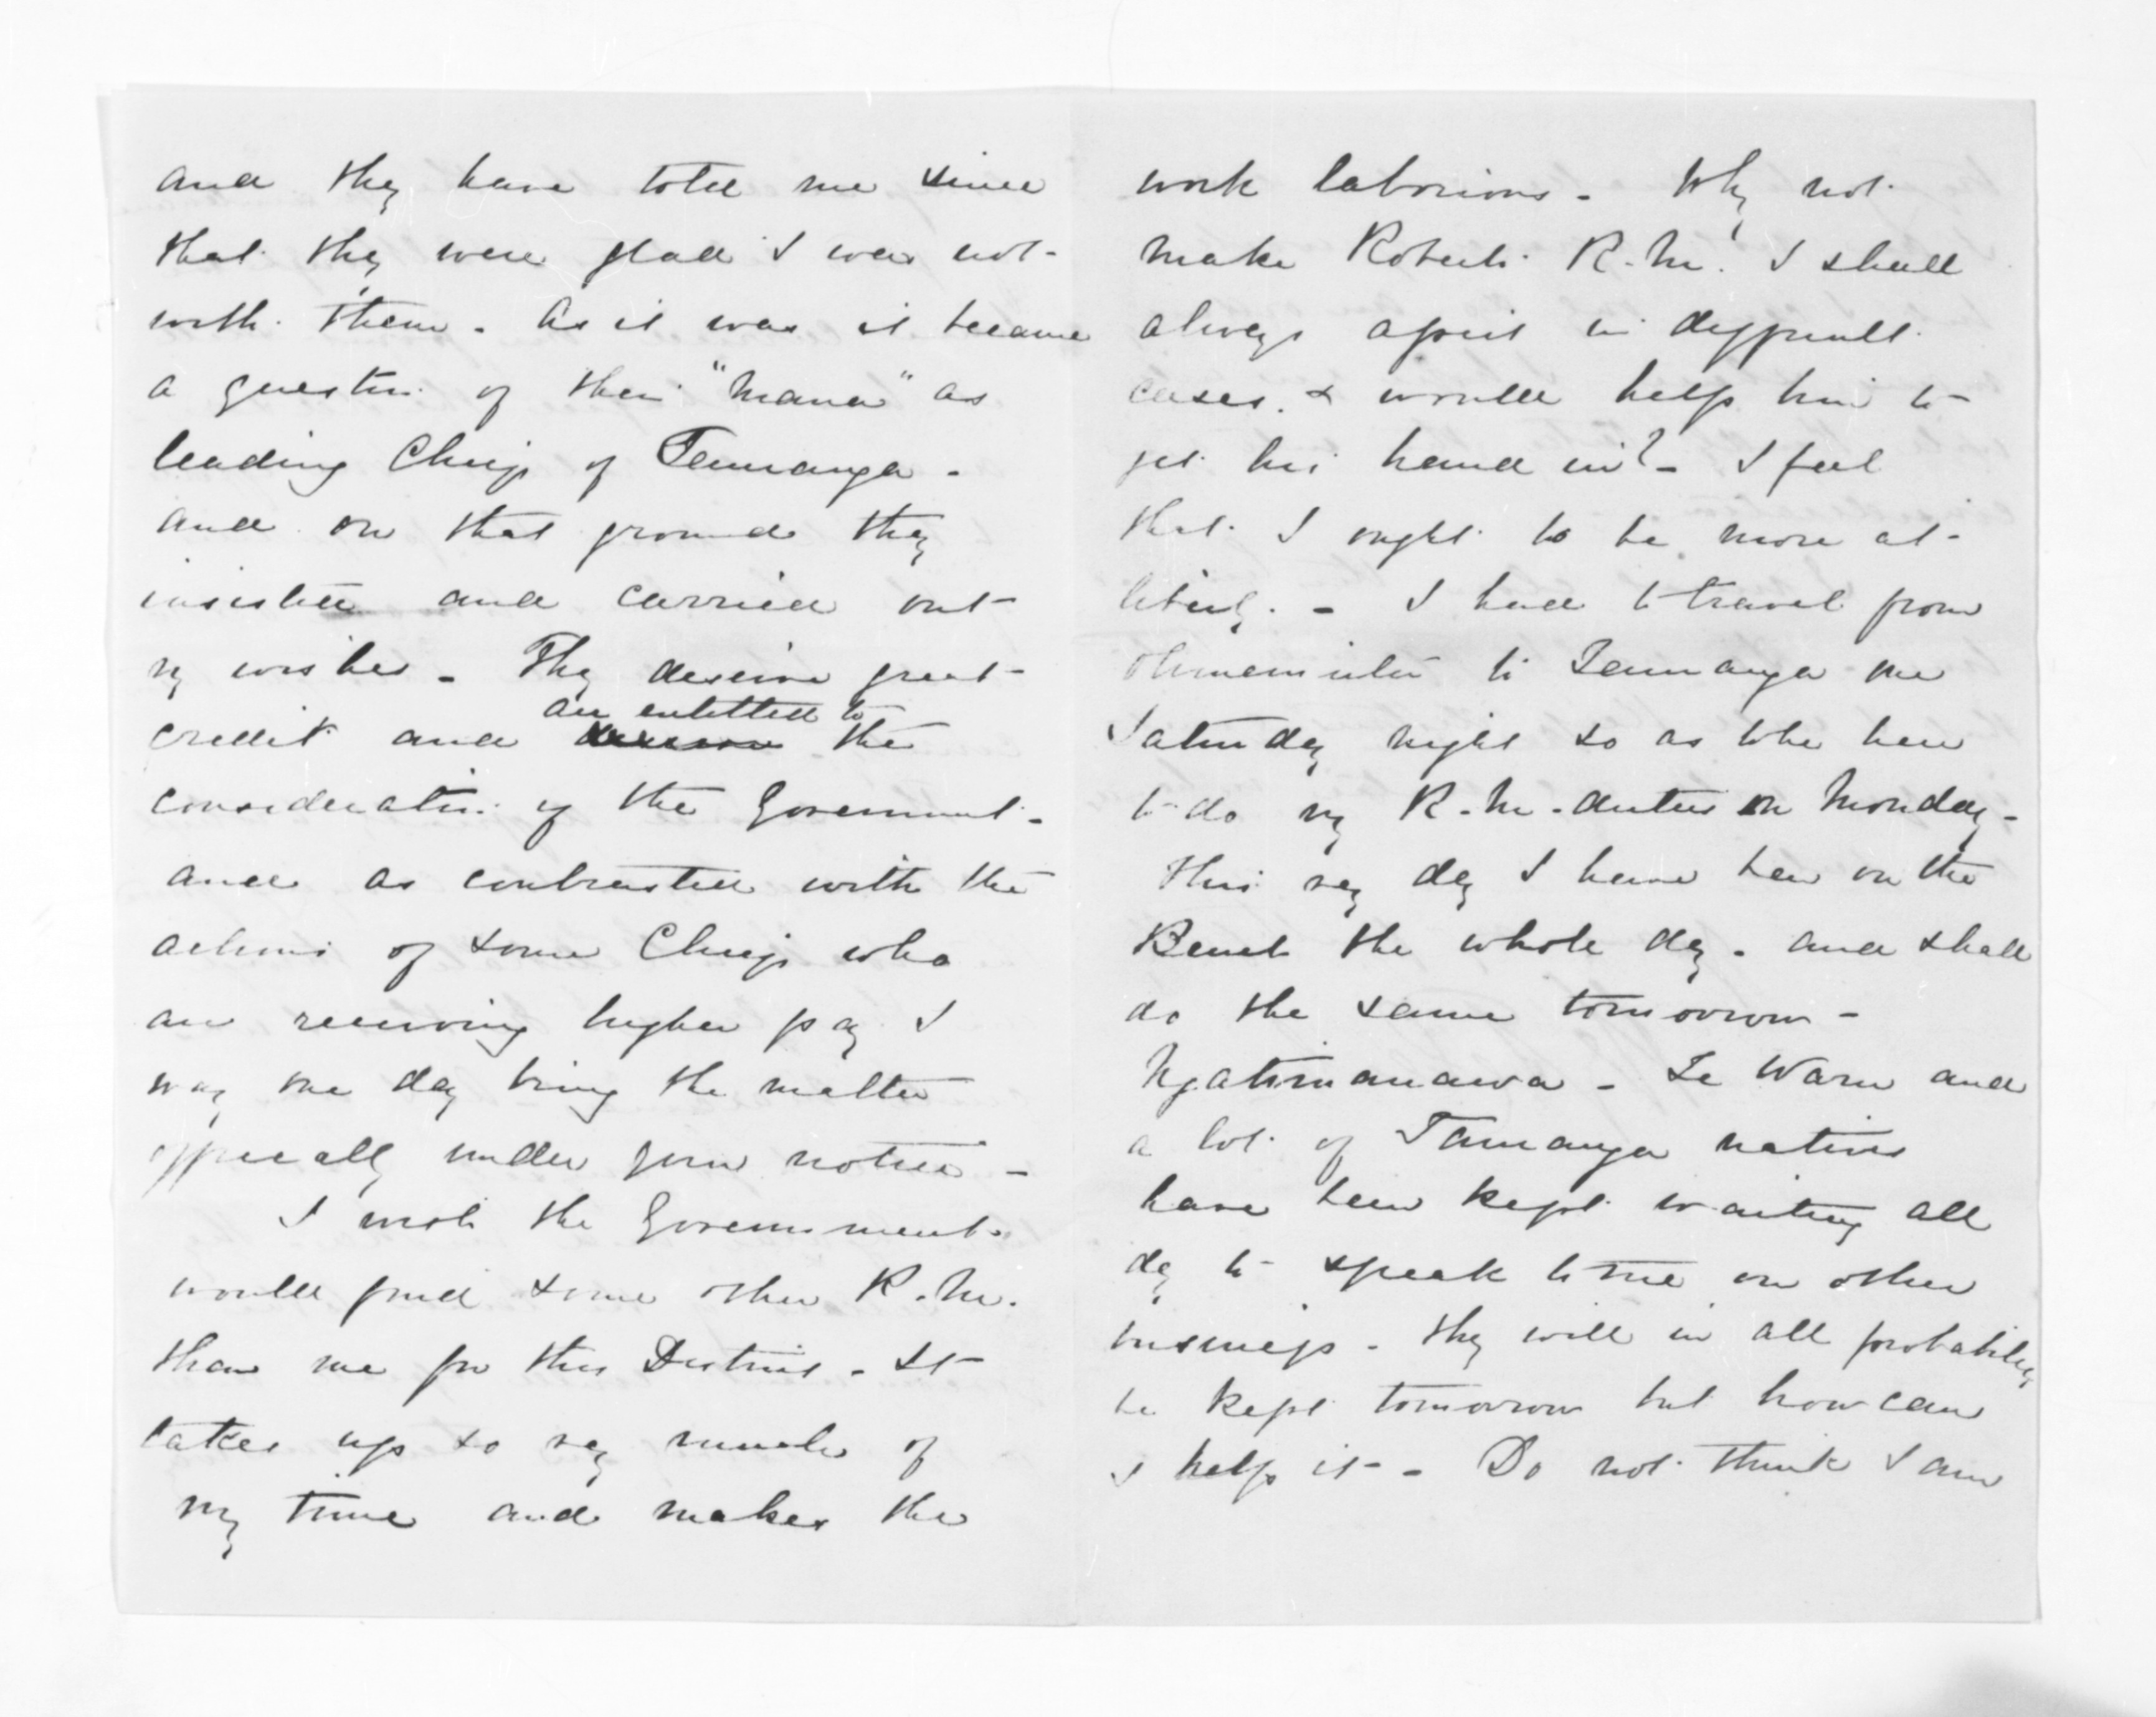 and they have told me since
that they were glad I was not
with them. As it was it became
a question of their "mana" as
leading Chiefs of Tauranga -
and on that ground they
insisted and carried out
my wishes - They deserve great
credit and deserve are entitled to the
consideration of the Government -
and as contrasted with the
actions of some Chiefs who
are receiving higher pay I
may one day bring the matter
officially under your notice -
I wish the Government
would find some other R.M.
than me for this District - It
takes up so very much of
my time and makes the
work laborious - Why not
make Roberts R.M.! I shall
always assist in difficult
cases. & would help him to
get his hand in? - I feel
that I ought to be more at
liberty. - I had to travel from
Ohinemutu to Tauranga one
Saturday night so as to be here
to do my R.M. duties on Monday -
This very day I have been on the
Bench the whole day - and shall
do the same tomorrow -
Ngatimanawa - Te Waru and
a lot of Tauranga natives
have been kept waiting all
day to speak to me on other
business - they will in all probability
be kept tomorrow but how can
I help it - Do not think I am